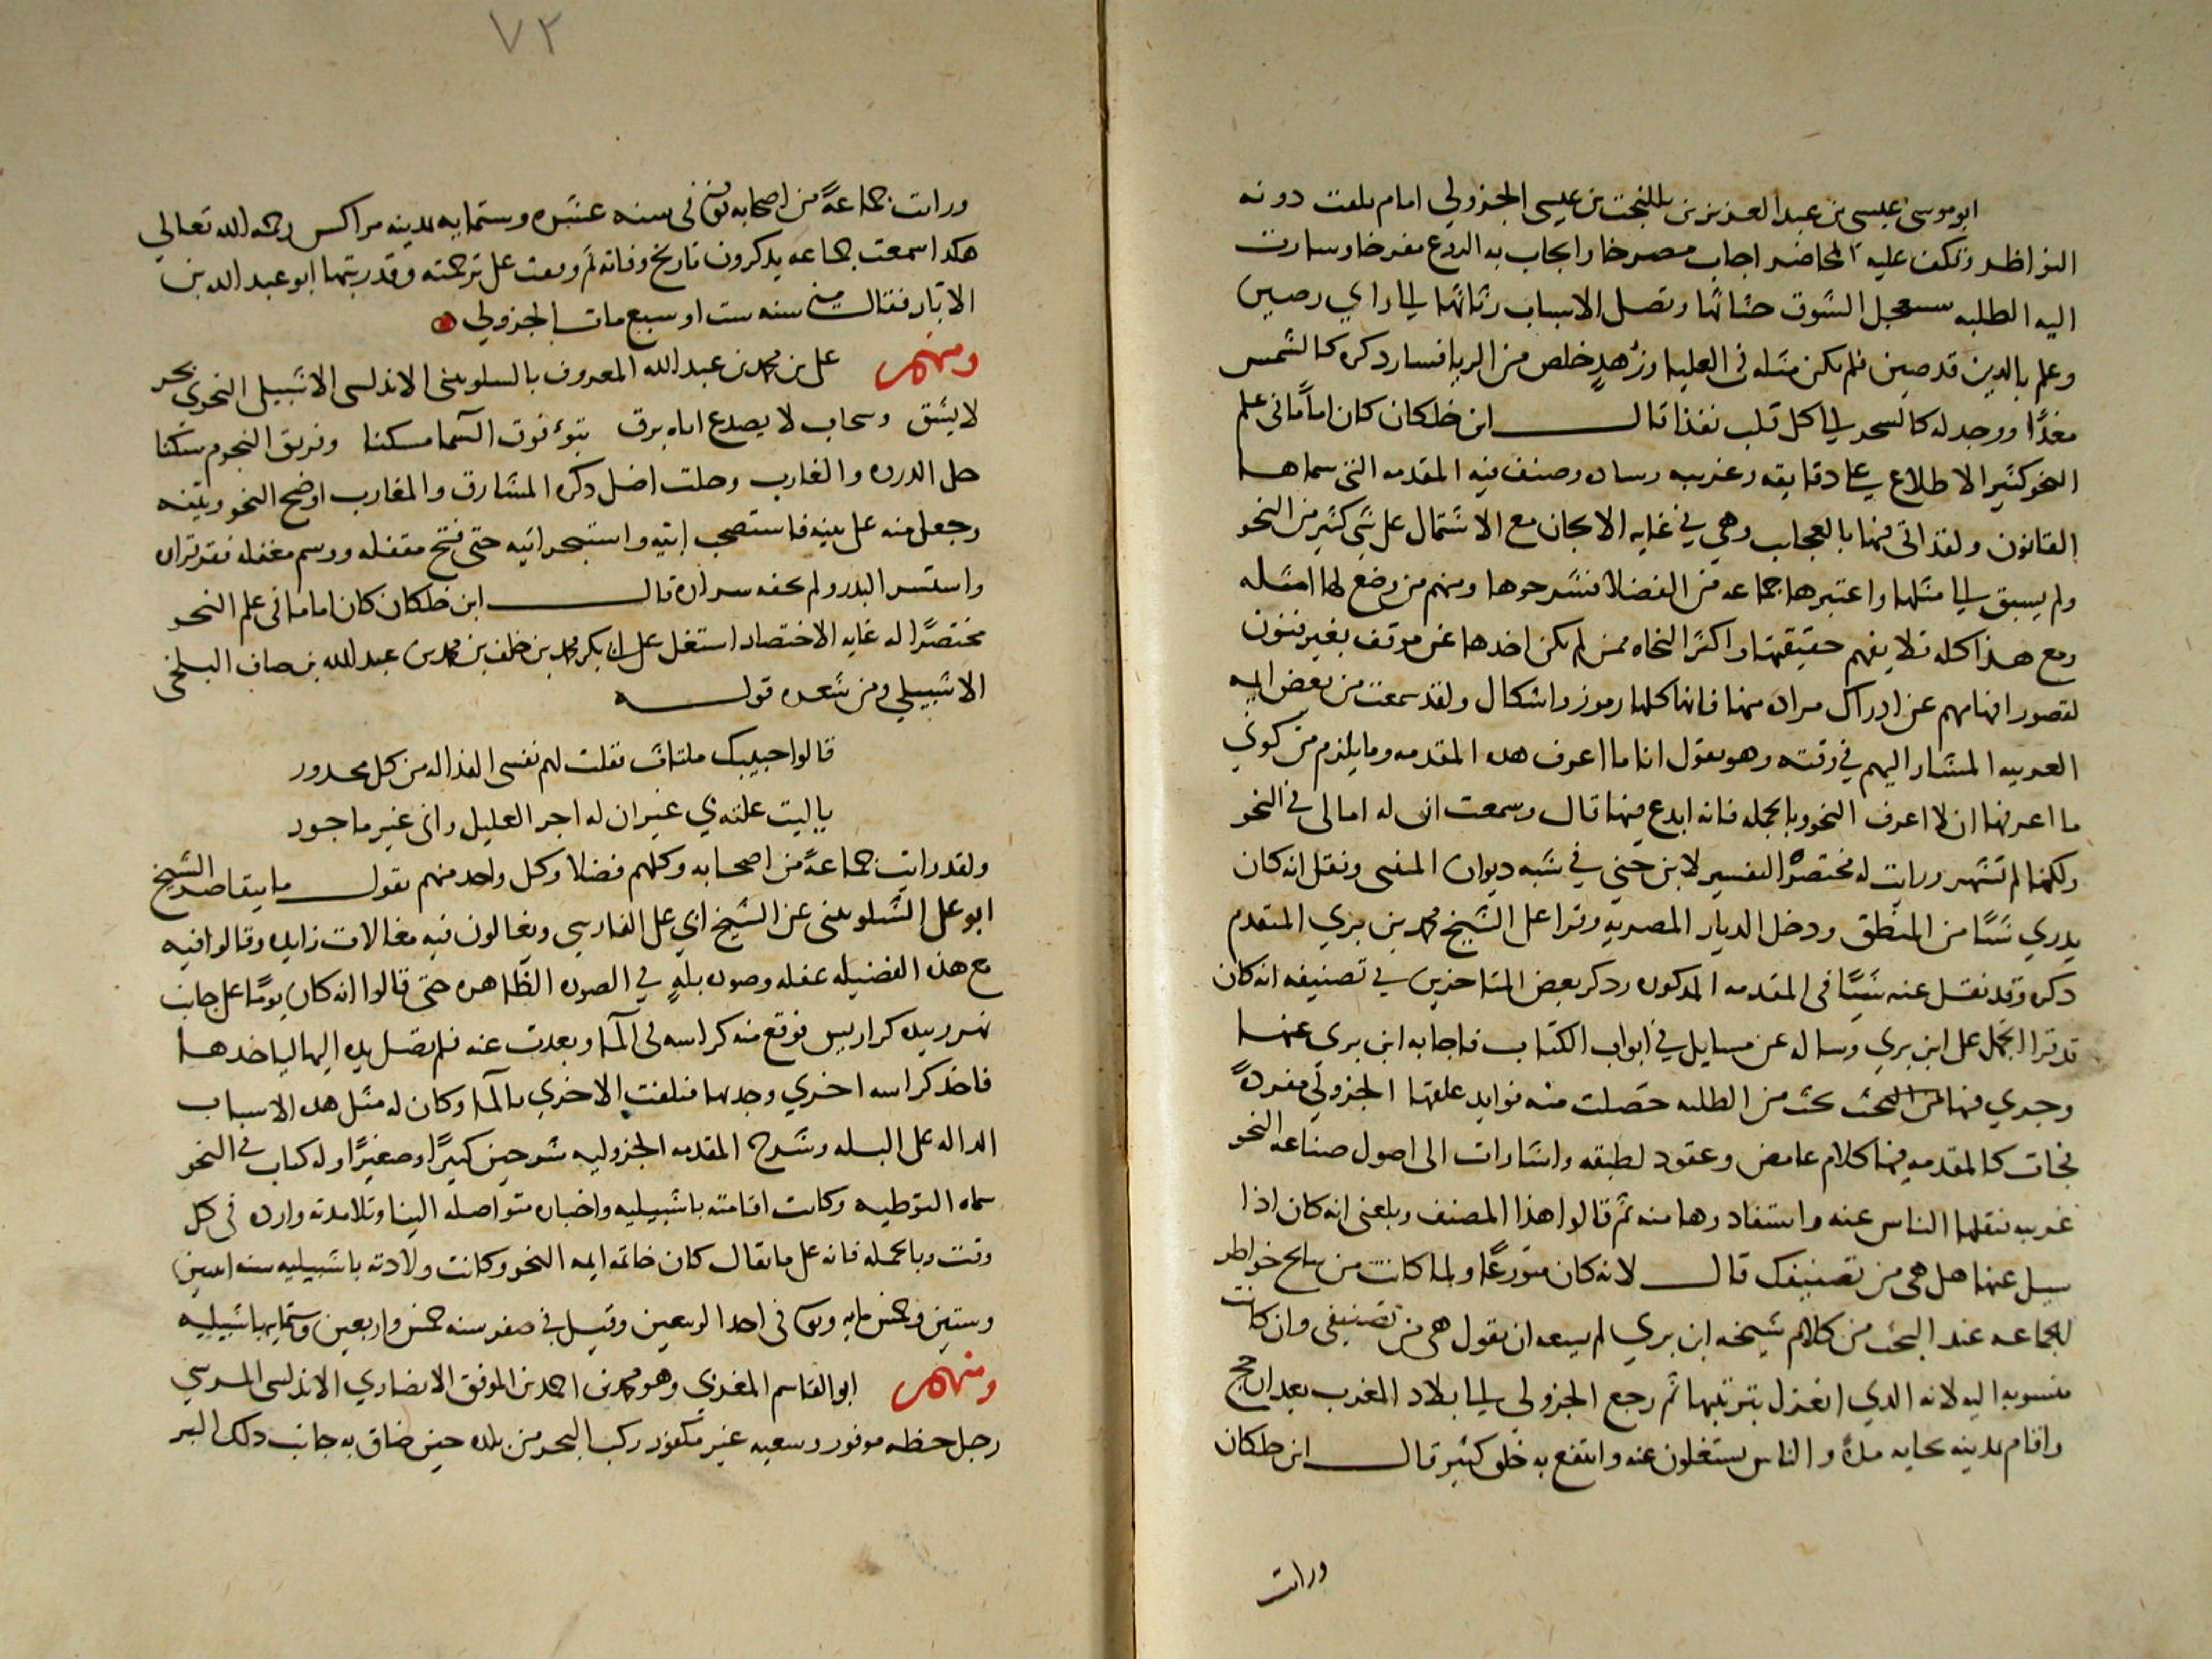 ابو موسى عيسى بن عبد العزيز بن يللبخت بن عيسى الجزولي امام بلغت دونه
النواظر وتكفى عليه المحاضر اجاب مصرخا وانجاب به الردع مفرخا وسارت
اليه الطلبه ستعجل الشوق حثاثها وتصل الاسباب رثاثها الي راي رصين
وعلم بالدين قد صين فلم يكن مثله في العليا وزهد خلص من الريا فسار دكره كالشمس
مغذا ووجد له كالسحر الي كل قلب نفذا قال ابن خلكان كان اماما في علم
النحو كثير الاطلاع علي دقايقه وغريبه وساده وصنف فيه المقدمه التي سماها
القانون ولقد اتى فيها بالعجايب وهي في غايه الايجاز مع الاشتمال على شي كثير من النحو
ولم يسبق الي مثلها واعتبرها جماعه من الفضلا فشرحوها ومنهم من وضع لها امثله
ومع هذا كله فلا يفهم حقيقتها واكثر النحاه ممن لم يكن اخدها عن موقف يعترفون
لقصور افهامهم عن ادراك مراده منها فانها كلها رموز واشكال ولقد سمعت من بعض ايمه
العربيه المشار اليهم في وقته وهو يقول انا ما اعرف هده المقدمه وما يلزم من كوني
ما اعرفها ان لا اعرف النحو وبالجمله فانه ابدع فيها قال وسمعت ان له امالي في النحو
ولكنها لم تشتهر ورايت له مختصر التفسير لابن جني في شبه ديوان المتنبي ونقل انه كان
يدري شيئا من المنطق ودخل الديار المصريه وقرا على الشيخ محمد بن بري المتقدم
دكره وقد نقل عنه شيئا في المقدمه المدكوره ودكر بعض المتاخرين في تصنيفه انه كان
قد قرا الجمل على ابن بري وساله عن مسايل في ابواب الكتاب فاجابه ابن بري عنها
وجري فيها بحث من الطلبه حصلت منه فوايد علقها الجزولي مفرده
فجات كالمقدمه فيها كلام غامض وعقود لطيفه واشارات الى اصول صناعه النحو
غريبه فنقلها الناس عنه واستفادوها منه ثم قالوا هذا المصنف وبلغني انه كان اذا
سيل عنها هل هي من تصنيفك قال لا لانه كان متورعا ولما كانت من نتايج خواطر
الجماعه عند البحث من كلام شيخه ابن بري لم يسعه ان يقول هي من تصنيفي وان كانت
منسوبه اليه لانه الدي انفرد بترتيبها ثم رجع الجزولي الي بلاد المغرب بعد ان حج
واقام بمدينه بجايه مده والناس يشتغلون عنه وانتفع به خلق كثير قال ابن خلكان
ورايت
٧٢
ورايت جماعة من اصحابه توفى في سنه عشره وستمايه بمدينه مراكس رحمه الله تعالي
هكدا سمعت جماعه يدكرون تاريخ وفاته ثم وقفت على ترجمته وقد رتبها ابو عبد الله بن
الابار فقال في سنه ست او سبع مات الجزولي
ومنهم على بن محمد بن عبد الله المعروف بالسلوبيني الاندلسي الاشبيلي النحوي بحر
لا يشق وسحاب لا يصدع اباه برق يتبوء فوق السما مسكنا وفريق النجوم سكنا
حل الدروه والغارب وحلت افضل دكره المشارق والمغارب اوضح النحو وبينه
وجعل منه على بينه فاستصحب ابيه واستبحر اتيه حتى فتح مقفله ووسم مغفله فقر قراره
واستسر البدر ولم يخفه سراره قال ابن خلكان كان اماما في علم النحو
مختصرا له غايه الاختصار اشتغل على ابي بكر محمد بن خلف بن محمد بن عبد الله بن صاف البلخي
الاشبيلي ومن شعره قوله
قالوا حبيبك ملتاث فقلت لهم نفسي الفدا له من كل محدور
يا ليت علته بي غير ان له اجر العليل واني غير ماجور
ولقد رايت جماعة من اصحابه وكلهم فضلا وكل واحد منهم يقول ما يتقاصر الشيخ
ابو على الشلوبيني عن الشيخ ابي على الفارسي ويغالون فيه مغالات زايده وقالوا فيه
مع هذه الفضيله غفله وصوره بله في الصوره الظاهره حتى قالوا انه كان يوما على جانب
نهر وبيده كراريس فوقع منه كراسه في الما وبعدت عنه فلم تصل يده اليها لياخدها
فاخد كراسه اخري وجدبها فتلفت الاخري بالما وكان له مثل هده الاسباب
الداله على البله وشرح المقدمه الجزوليه شرحين كبيرا وصغيرا وله كتاب في النحو
سماه التوطيه وكانت اقامته باشبيليه واخباره متواصله الينا وتلامدته وارده في كل
وقت وبالجمله فانه على ما يقال كان خاتمه ايمه النحو وكانت ولادته باشبيليه سنه اثنين
وستين وخمس مايه وتوفى في احد الربيعين وقيل في صفر سنه خمس واربعين وستمايه باشبيليه
ومنهم ابو القاسم المغربي وهو محمد بن احمد بن الموفق الانصاري الاندلسي المرسي
رجل حظه موفور وسعيه غير مكفور ركب البحر من بلده حين ضاق به جانب دلك البر